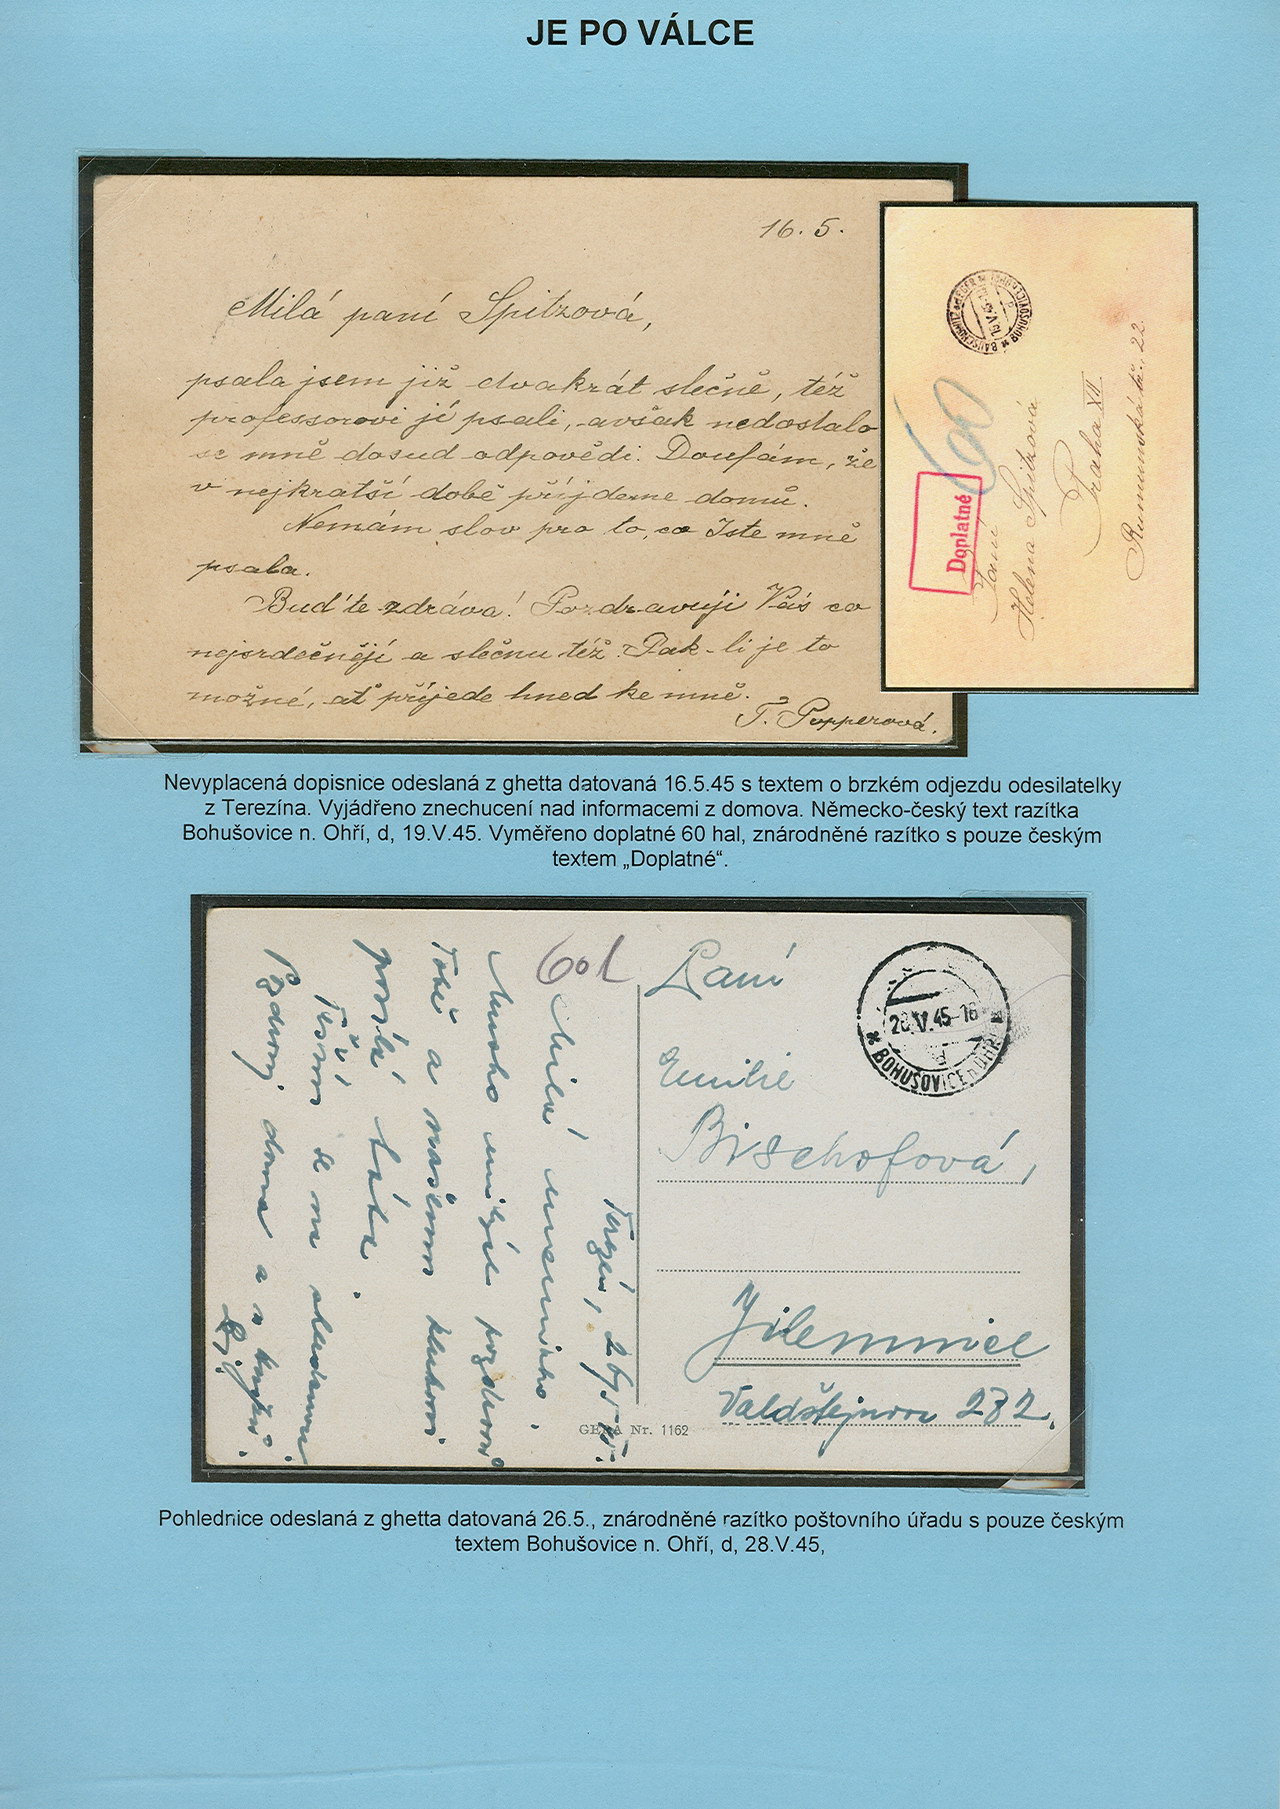 JE PO VÁLCE
16. 5.
Milá paní Spitzová,
psala jsem již dvakrát slečně, též
professorovi jí psali, avšak nedostalo
se mně dosud odpovědi. Doufám, že
v nejkratší době příjdeme domů.
Nemám slov pro to, co Jste mně
psala.
Buďte zdráva! Pozdravuji Vás co
nejsrdečněji a slečnu též. Pak-li je to
možné, ať příjede hned ke mně.
T. Popperová.
BAUSCHOWITZ a.d. EGER BOHUŠOVICE n. OHŘÍ
60
Doplatné
Paní
Helena Spitzová
Praha XII
Rumunská tř. 22.
Nevyplacená dopisnice odeslaná z ghetta datovaná 16.5.45 s textem o brzkém odjezdu odesilatelky
z Terezína. Vyjádřeno znechucení nad informacemi z domova. Německo-český text razítka
Bohušovice n. Ohří, d, 19.V.45. Vyměřeno doplatné 60 hal, znárodněné razítko s pouze českým
textem „Doplatné“.
Terezín, 26/5 45.
Milá maminko!
Mnoho milých pozdravů
Tobě a našim klukům
posílá táta.
Těším se na shledanou
Pozdravuj doma a
60
Paní
Emilie
Bischofová,
Jilemnice
Valdštejnova 232.
28.V.45-16
d
BOHUŠOVICE n. OHŘÍ
GERA Nr. 1162
Pohlednice odeslaná z ghetta datovaná 26.5., znárodněné razítko poštovního úřadu s pouze českým
textem Bohušovice n. Ohří, d, 28.V.45,